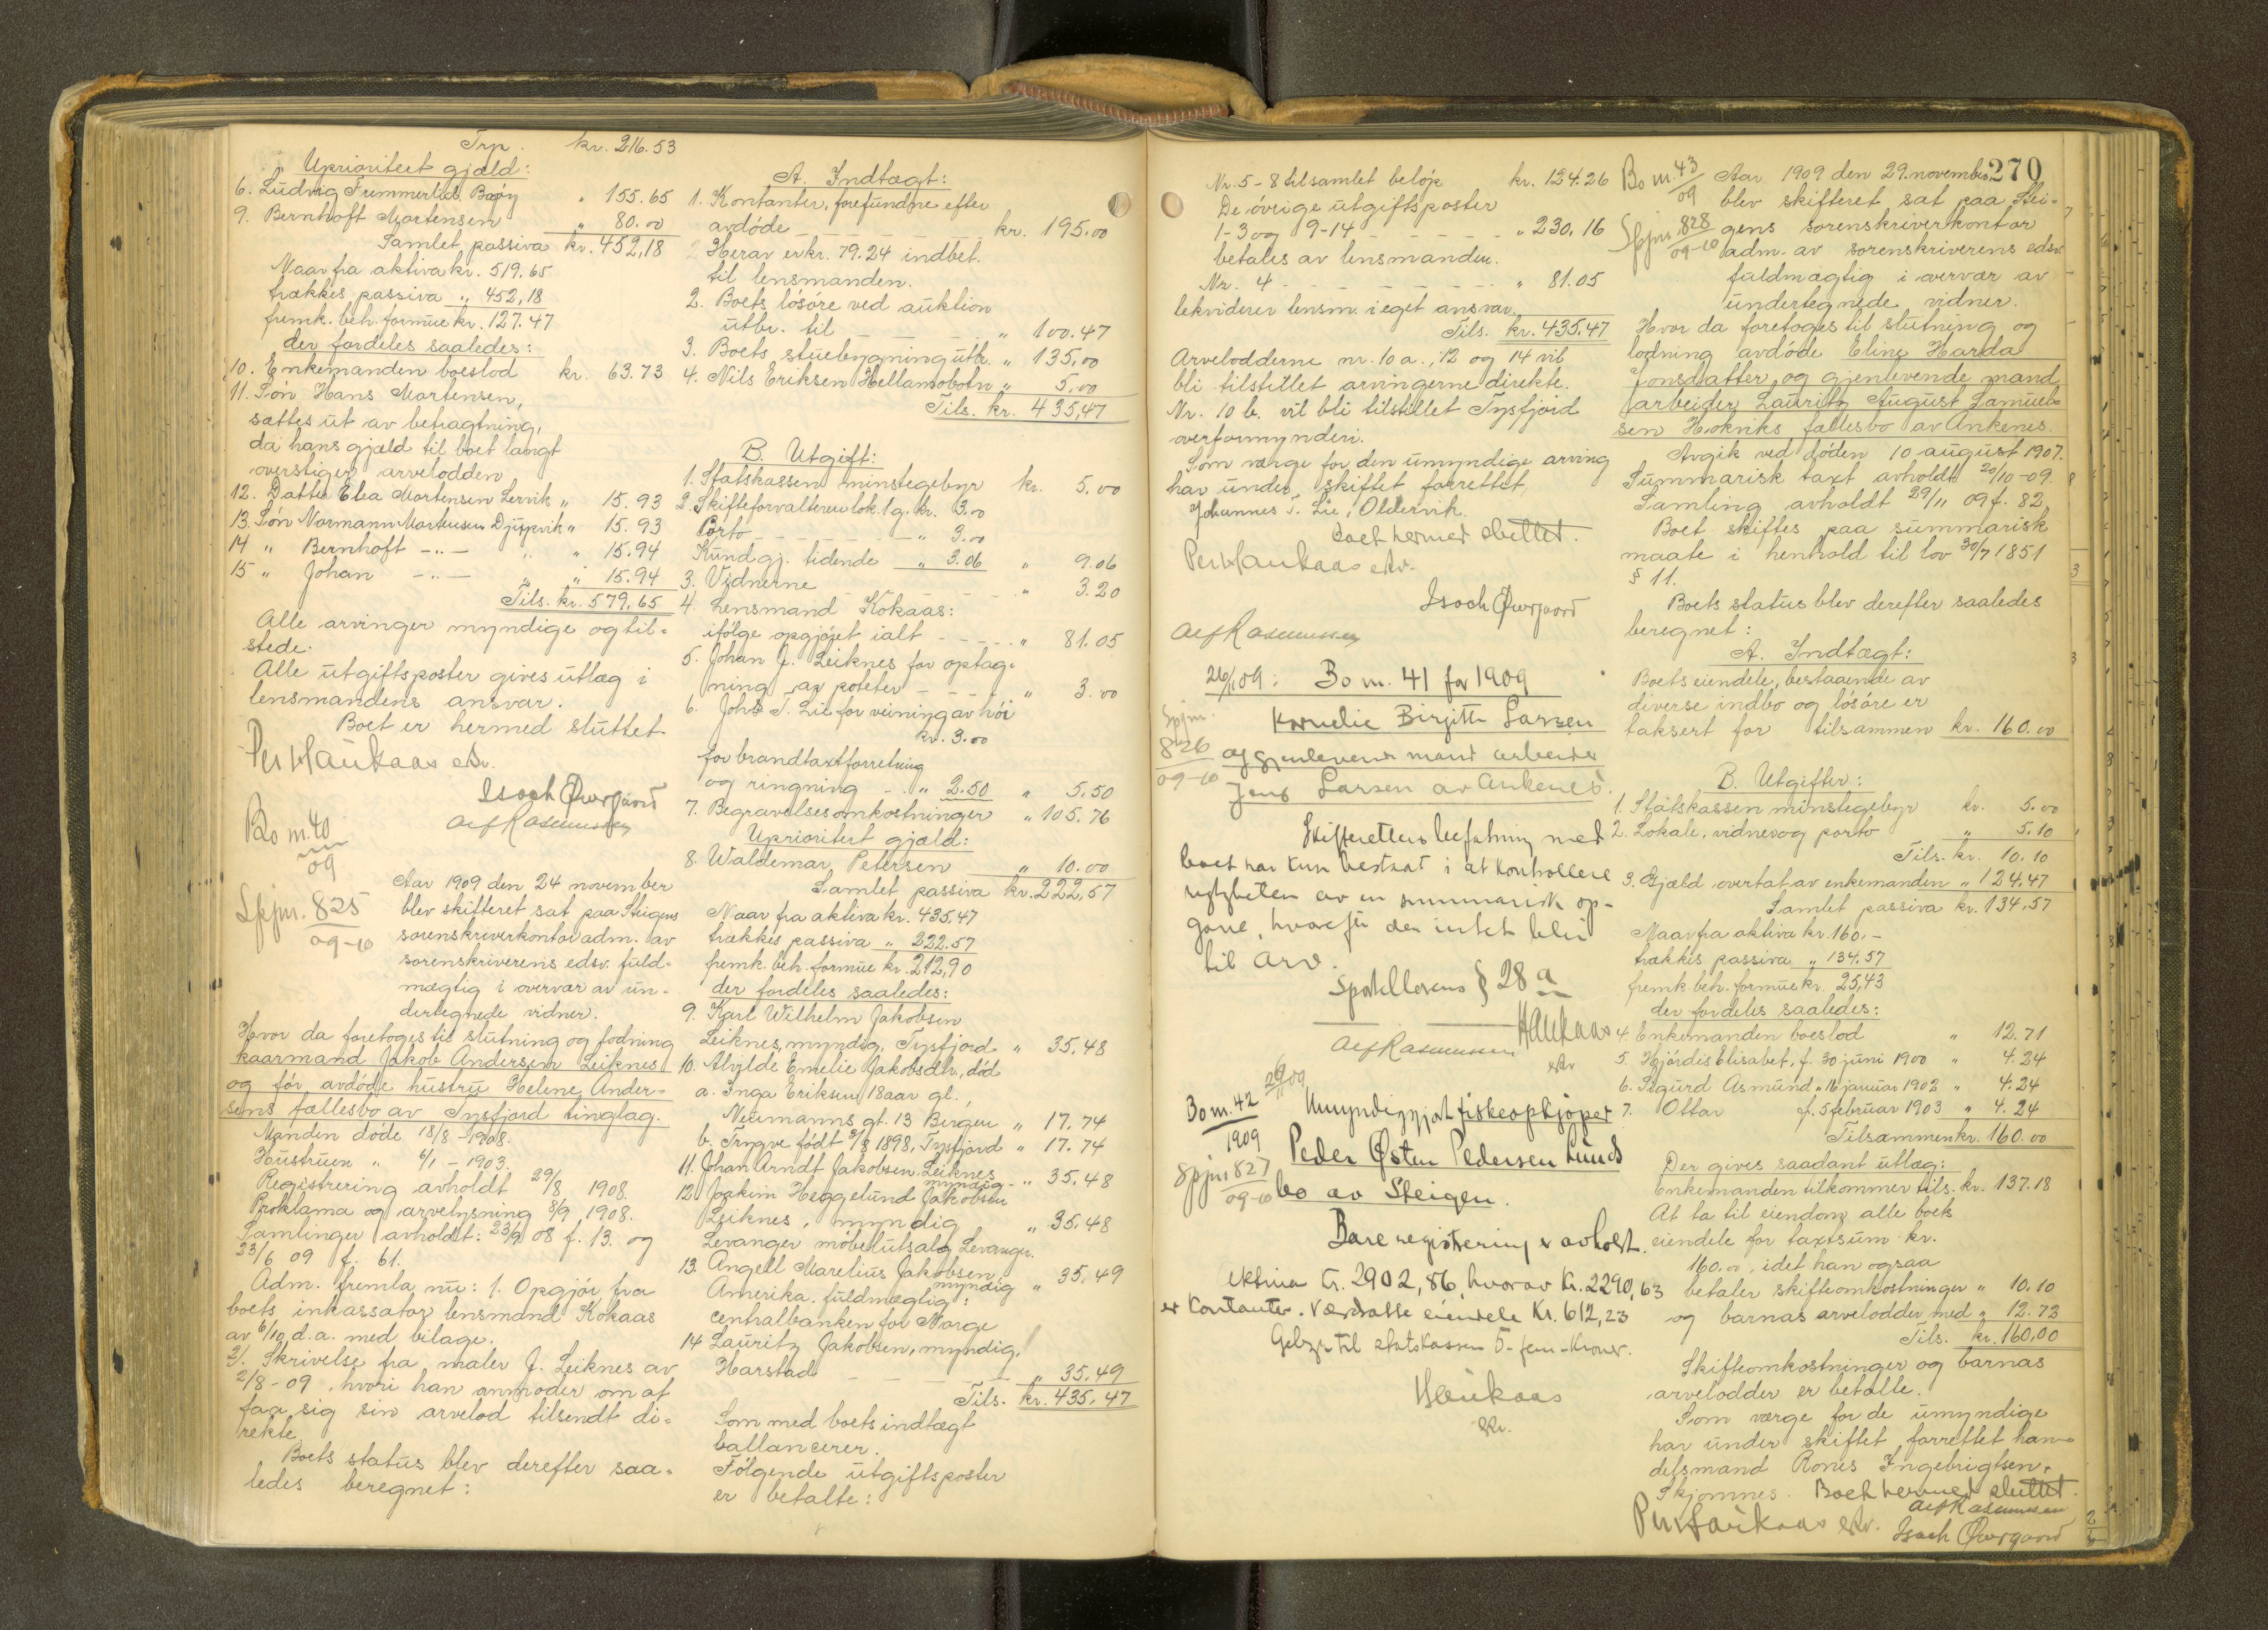 Trp. kr. 216.53
Uprioritert gjæld:
6. Ludvig Tummerlid, Bogøy " 155.65
9. Bernhoft Mortensen " 80.00
Samlet passiva kr. 452,18
Naar fra aktiva kr. 519.65
trækkes passiva " 452,18
fremk. beh. formue kr. 127.47
der fordeles saaledes:
10. Enkemanden boeslod kr. 63.73
11. Søn Hans Mortensen,
sættes ut av betragtning,
da hans gjæld til boet langt
overstiger arvelodden
12. Datter Elea Mortensen Lervik " 15.93
13. Søn Normann Mortensen Djupvik " 15.93
14 " Bernhoft -"- " " 15.94
15 " Johan -"- " " 15.94
Tils. kr. 579.65
Alle arvinger myndige og til-
stede.
Alle utgiftsposter gives utlæg i
lensmandens ansvar.
Boet er hermed sluttet.
Per Haukaas edsv.
Isach Øvergaard
Alf Rasmussen
Bo nr. 40
09
Spjnr. 825
09-10
Aar 1909 den 24 november
blev skifteret sat paa Steigens
sorenskriverkontor adm. av
sorenskriverens edsv. fuld-
mægtig i overvær av un-
dertegnede vidner.
Hvor da foretoges til slutning og lodning
kaarmand Jakob Andersen Leiknes
og før avdøde hustru Helene Ander-
sens fællesbo av Tysfjord tinglag.
Manden døde 18/8 - 1908.
Hustruen " 6/1 - 1903.
Registrering avholdt 29/8 1908.
Proklama og arvelysning 8/9 1908.
Samlinger avholdt: 23/9 08 f. 13. og
23/6 09 f. 61.
Adm. fremla nu: 1. Opgjør fra
boets inkassator lensmand Kokaas
av 6/10 d.a. med bilage.
2/. Skrivelse fra maler J. Leiknes av
2/8-09, hvori han anmoder om at
faa sig sin arvelod tilsendt di-
rekte.
Boets status blev derefter saa-
ledes beregnet:
A. Indtægt:
1. Kontanter, forefundne efter
avdøde kr. 195.00
Herav er kr. 79.24 indbet.
til lensmanden.
2. Boets løsøre ved auktion
utbr. til " 100.47
3. Boets stuebygning utb. " 135,00
4. Nils Eriksen Hellamobotn " 5.00
Tils. kr. 435,47
B. Utgift:
1. Statskassen minstegebyr kr. 5.00
2. Skifteforvalteren lok. 1 g. kr. 3.00
Porto " 3.00
Kundgj. tidende " 3.06 " 9.06
3. Vidnerne " 3.20
4. Lensmand Kokaas:
ifølge opgjøret ialt " 81.05
5. Johan J. Leiknes for optag-
ning av poteter " 3.00
6. Johs J. Lie for veining av høi
kr. 3.00
for brandtaxtforretning
og ringning " 2.50 " 5.50
7. Begravelsesomkostninger " 105.76
Uprioritert gjæld:
8. Waldemar Petersen " 10.00
Samlet passiva kr. 222,57
Naar fra aktiva kr. 435,47
trækkes passiva " 222.57
fremk. beh. formue kr. 212,90
der fordeles saaledes:
9. Karl Wilhelm Jakobsen
Leiknes, myndig, Tysfjord " 35.48
10. Alvilde Emelie Jakobsdtr., død
a. Inga Eriksen 18 aar gl.,
Neumanns gt. 13 Bergen " 17.74
b. Trygve født 3/8 1898, Tysfjord " 17.74
11. Johan Arndt Jakobsen Leiknes
myndig - " 35.48
12. Joakim Heggelund Jakobsen
Leiknes, myndig " 35.48
Levanger møbelutsalg Levanger.
13. Angell Marelius Jakobsen
myndig " 35.49
Amerika. fuldmægtig:
Centralbanken for Norge
14 Lauritz Jakobsen, myndig,
Harstad " 35.49
Tils. kr. 435.47
Som med boets indtægt
ballancerer.
Følgende utgiftsposter
er betalte:
Nr. 5-8 tilsamlet beløp kr. 124.26
De øvrige utgiftsposter
1-3 og 9-14 " 230.16
betales av lensmanden.
Nr. 4 " 81.05
lekviderer lensm. i eget ansvar
Tils. kr. 435.47
Arvelodderne nr. 10 a., 12 og 14 vil
bli tilstillet arvingerne direkte.
Nr. 10 b. vil bli tilstillet Tysfjord
overformynderi.
Som værge for den umyndige arving
har under skiftet forrettet
Johannes J. Lie, Oldervik.
Boet hermed sluttet.
Per Haukaas edsv.
Isach Øvergaard
Alf Rasmussen
26/11 09: Bo nr. 41 for 1909
Spjnr.
826
09-10
Kornelie Birgitte Larsen
og gjenlevende mand arbeider
Jens Larsen av Ankenes.
Skifterettens befatning med
boet har kun bestaat i at kontrollere
rigtigheten av en summarisk op-
gave, hvorefter der intet blir
til arv.
Sportellovens § 28 a
Haukaas
edsv
Alf Rasmussen
Bo nr. 42
1909
26/11 09
Spjnr 827
09-10
Umyndiggjort fiskeopkjøper
Peder Østen Pedersen Lunds
bo av Steigen.
Bare registrering er avholdt.
Aktiva kr. 2902,86, hvorav kr. 2290,63
er kontanter. Værdsatte eiendele kr. 612,23
Gebyr til statskassen 5 - fem - kroner.
Haukaas
edsv.
270
Bo nr. 43
09
Spjnr. 828
09-10
Aar 1909 den 29. november
blev skifteret sat paa Stei-
gens sorenskriverkontor
adm. av sorenskriverens edsv.
fuldmægtig i overvær av
undertegnede vidner.
Hvor da foretoges til slutning og
lodning avdøde Eline Harda
Jonsdatter og gjenlevende mand
arbeider Lauritz August Samuel-
sen Hokviks fællesbo av Ankenes.
Avgik ved døden 10 august 1907.
Summarisk taxt avholdt 20/10-09.
Samling avholdt 29/11 09 f. 82.
Boet skiftes paa summarisk
maate i henhold til lov 30/7 1851
§ 11.
Boets status blev derefter saaledes
beregnet:
A. Indtægt:
Boets eiendele, bestaaende av
diverse indbo og løsøre er
taksert for tilsammen kr. 160.00
B. Utgifter:
1. Statskassen minstegebyr kr. 5.00
2. Lokale, vidner og porto " 5.10
Tils. kr. 10.10
3. Gjæld overtat av enkemanden " 124.47
Samlet passiva kr. 134,57
Naar fra aktiva kr. 160.-
trækkes passiva " 134.57
fremk. beh. formue kr. 25,43
der fordeles saaledes:
4. Enkemanden boeslod " 12.71
5. Hjørdis Elisabet, f. 30 juni 1900 " 4.24
6. Sigurd Asmund " 16 januar 1902 " 4.24
7. Ottar f. 5 februar 1903 " 4.24
Tilsammen kr. 160.00
Der gives saadant utlæg:
Enkemanden tilkommer tils. kr. 137.18
At ta til eiendom alle boets
eiendele for taxtsum kr.
160.00, idet han ogsaa
betaler skifteomkostninger " 10.10
og barnas arvelodder med " 12.72
Tils. kr. 160,00
Skifteomkostninger og barnas
arvelodder er betalte.
Som værge for de umyndige
har under skiftet forrettet han-
delsmand Rones Ingebrigtsen,
Skjomnes. Boet hermed sluttet.
Alf Rasmussen
Per Haukaas edsv. Isach Øvergaard